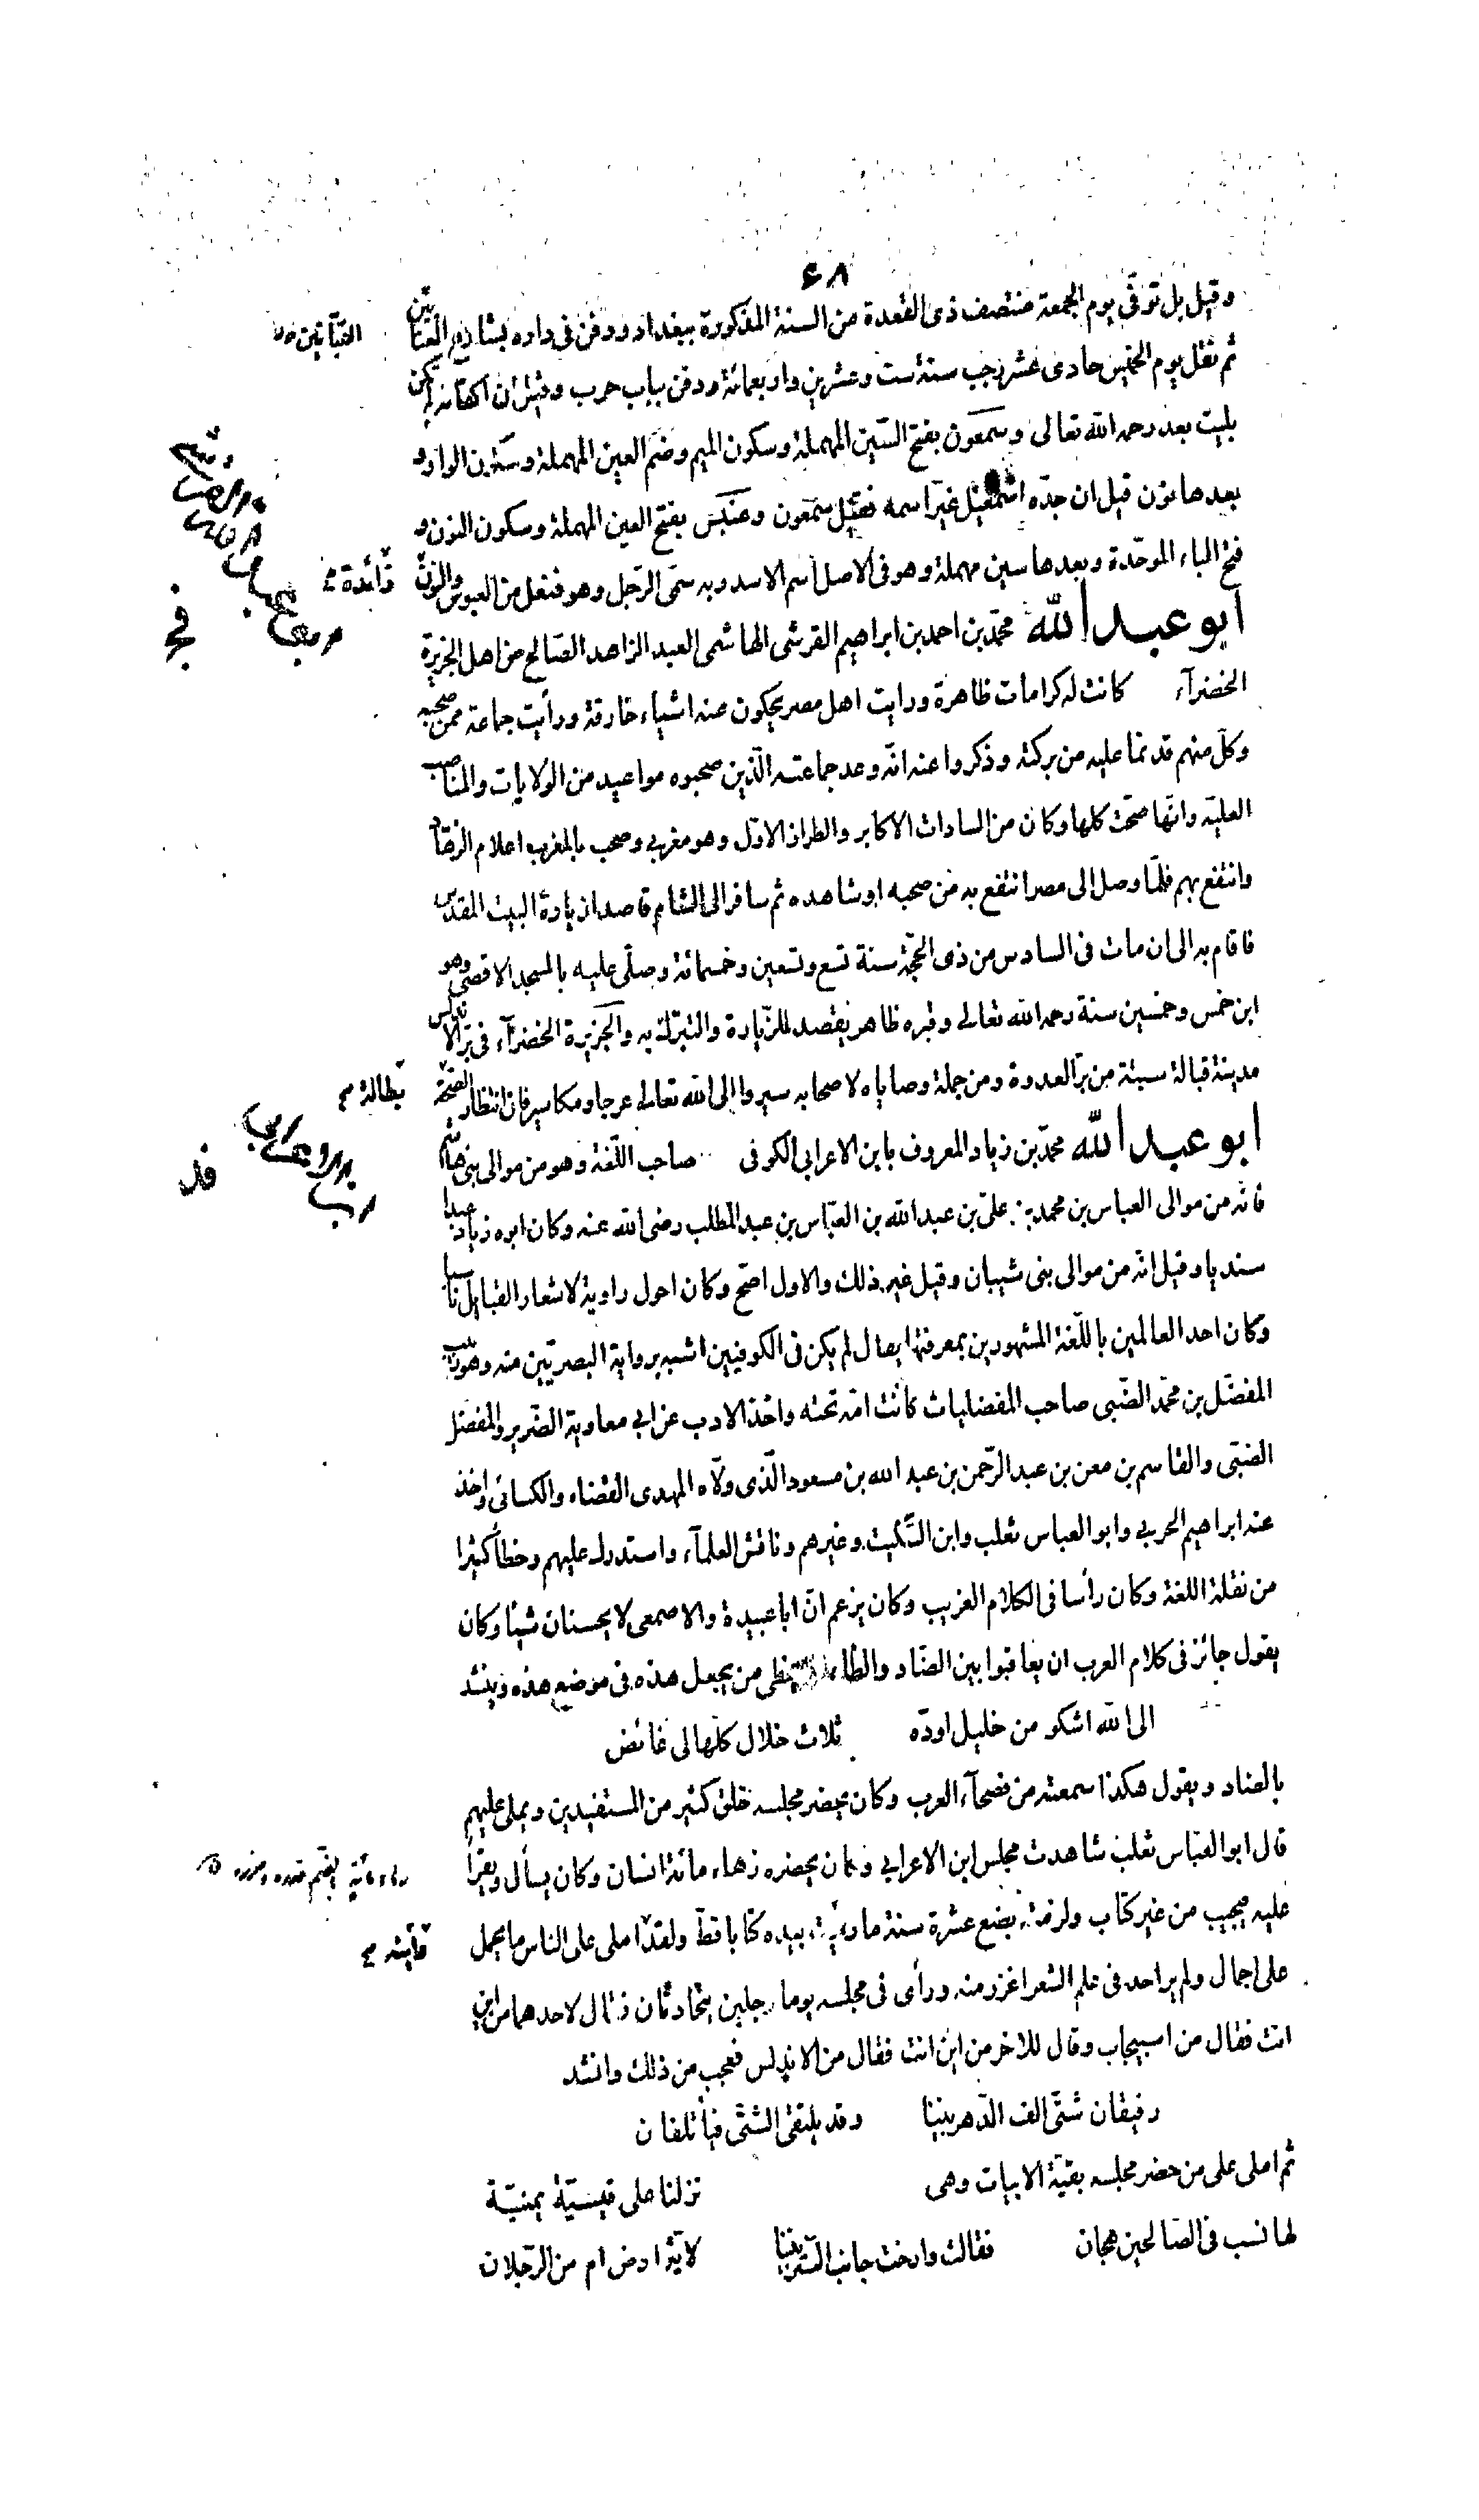 ٤٨
وقيل بل توفى يوم الجمعة منتصف ذى القعدة من السنة المذكورة ببغداد ودفن فى داره بشارع العتابين
ثم نقل يوم الخميس حادى عشر رجب سنة ست وعشرين واربعمائة ودفن بباب حرب وقيل ان اكفانه لم تكن
بليت بعد رحمه الله تعالى وسمعون بفتح السّين المهملة وسكون الميم وضمّ العين المهملة وسكون الواو و
بعدها نون قيل ان جدّه اسمعيل غيّر اسمه فقيل سمعون وعنبس بفتح العين المهملة وسكون النون و
فتح الباء الموحّدة وبعدها سين مهملة وهو فى الاصل اسم الاسد وبه سمّى الرّجل وهو فنعل من العبوس والنون زائدة
ابو عبد الله محمّد بن احمد بن ابراهيم القرشى الهاشمى العبد الزاهد الصّالح من اهل الجزيرة
الخضرآء كانت له كرامات ظاهرة ورايت اهل مصر يحكون عنه اشياء خارقة ورأيت جماعة ممن صحبه
وكلّ منهم قد نما عليه من بركته وذكروا عنه انّه وعد جماعته الّذين صحبوه مواعيد من الولايات والمناصب
العليّة وانّها صحّت كلها وكان من السادات الاكابر والطراز الاوّل وهو مغربى وصحب بالمغرب اعلام الزهّاد
وانتفع بهم فلمّا وصل الى مصر انتفع به من صحبه او شاهده ثم سافر الى الشام قاصدا زيارة البيت المقدس
فاقام به الى ان مات فى السادس من ذى الحجّة سنة تسع وتسعين وخمسمائة وصلّى عليه بالمسجد الاقصى وهو
ابن خمس وخمسين سنة رحمه الله تعالى وقبره ظاهر يقصد للزّيارة والتبرّك به والجزيرة الخضرآء فى برّ الاندلس
مدينة قبالة سبتة من برّ العدوة ومن جملة وصاياه لاصحابه سيروا الى الله تعالى عرجا ومكاسير فان انتظار الصّحّة بطالة
ابو عبد الله محمّد بن زياد المعروف بابن الاعرابى الكوفى صاحب اللّغة وهو من موالى بنى هاشم
فانّه من موالى العباس بن محمد بن علىّ بن عبد الله بن العبّاس بن عبد المطلب رضى الله عنه وكان ابوه زياد عبدا
سنديا وقيل انّه من موالى بنى شيبان وقيل غير ذلك والاول اصحّ وكان احول راوية لاشعار القبايل ناسبا
وكان احد العالمين باللّغة المشهورين بمعرفتها يقال لم يكن فى الكوفيين اشبه برواية البصريّين منه وهو ربيب
المفضّل بن محمّد الضّبى صاحب المفضليات كانت امّه تحته واخذ الادب عن ابى معاوية الضّرير والمفضل
الضبّى والقاسم بن معن بن عبد الرّحمن بن عبد الله بن مسعود الّذى ولّاه المهدى القضاء والكسائى واخذ
عنه ابراهيم الحربى وابو العباس ثعلب وابن السّكيت وغيرهم وناقش العلمآء واستدرك عليهم وخطّأ كثيرا
من نقلة اللغة وكان رأسا فى الكلام الغريب وكان يزعم انّ ابا عبيدة والاصمعى لا يحسنان شيئا وكان
يقول جائز فى كلام العرب ان يعاقبوا بين الضّاد والظاء فلا يخطى من يجعل هذه فى موضع هذه وينشد
الى الله اشكو من خليل اودّه ثلاث خلال كلّها لى غائض
بالضاد ويقول هكذا سمعته من فصحآء العرب وكان يحضر مجلسه خلق كثير من المستفيدين ويملى عليهم
قال ابو العبّاس ثعلب شاهدت مجلس ابن الاعرابى وكان يحضره زهاء مائة انسان وكان يسأل ويقرأ
عليه فيجيب من غير كتاب ولزمته بضع عشرة سنة ما رأيت بيده كتابا قطّ ولقد املى على الناس ما يحمل
على اجمال ولم ير احد فى علم الشعر اغزر منه ورأى فى مجلسه يوما رجلين يتحادثان فقال لاحدهما من اين
انت فقال من اسبيجاب وقال للاخر من اين انت فقال من الاندلس فعجب من ذلك وانشد
رفيقان شتّى الف الدّهر بيننا وقد يلتقى الشتّى فيأتلفان
ثم املى على من حضر مجلسه بقيّة الابيات وهى نزلنا على قيسيّة يمنيّة
لها نسب فى الصّالحين هجان فقالت وارخت جانب السّتر بيننا لايّة ارض ام من الرّجلان